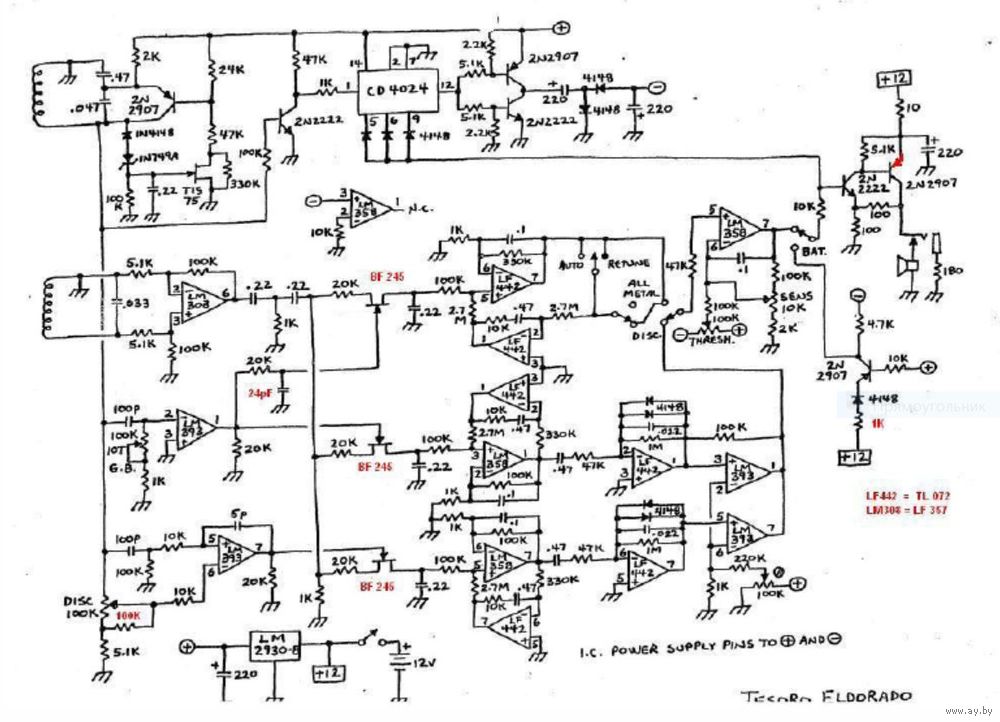 2.2K
47K
2N2907
2K
24K
14
2
7
5.1K
4148
+12
.47
1K
1
CD4024
12
220
10
.047
2N
2907
5
6
9
4148
5.1K
2N2222
4148
220
1N4148
47K
2N2222
2.2K
5.1K
220
1N749A
100K
2N
2222
2N2907
.22
TIS
75
330K
3
2
LM
358
1
N.C.
100K
10K
10K
100
100
5
6
LM
358
7
BAT.
1K
.1
330K
AUTO
RETUNE
47K
.1
180
5.1K
100K
BF 245
100K
6
5
LF
442
7
ALL
METAL
100K
SENS
10K
.033
2
3
LM
308
6
.22
.22
20K
.22
2.7M
.47
10K
2.7M
DISC.
100K
100K
THRESH.
2K
4.7K
5.1K
100K
1K
1
LF
442
2
3
2N
2907
10K
20K
24pF
1
LF
442
3
2
4148
Прямоугольник
1K
+12
100P
2
3
LM
393
1
100K
10T
G.B.
1K
20K
20K
BF 245
100K
.22
10K
.47
2.7M
330K
3
2
LM
358
1
100K
.1
1K
.47
47K
4148
.022
1M
2
3
LF
442
1
100K
3
2
LM
393
1
LF442 = TL 072
LM308 = LF 357
5P
100P
10K
5
6
LM
393
7
100K
20K
20K
BF 245
100K
.22
1K
.1
100K
6
5
LM
358
7
2.7M
.47
10K
330K
.47
47K
4148
.022
1M
6
5
LF
442
7
5
6
LM
393
7
220K
1K
100K
DISC
100K
100K
10K
1K
7
LF
442
6
5
5.1K
LM
2930-8
+12
220
12V
I.C. POWER SUPPLY PINS TO ⊕ AND ⊖
TESORO ELDORADO
www.ay.by